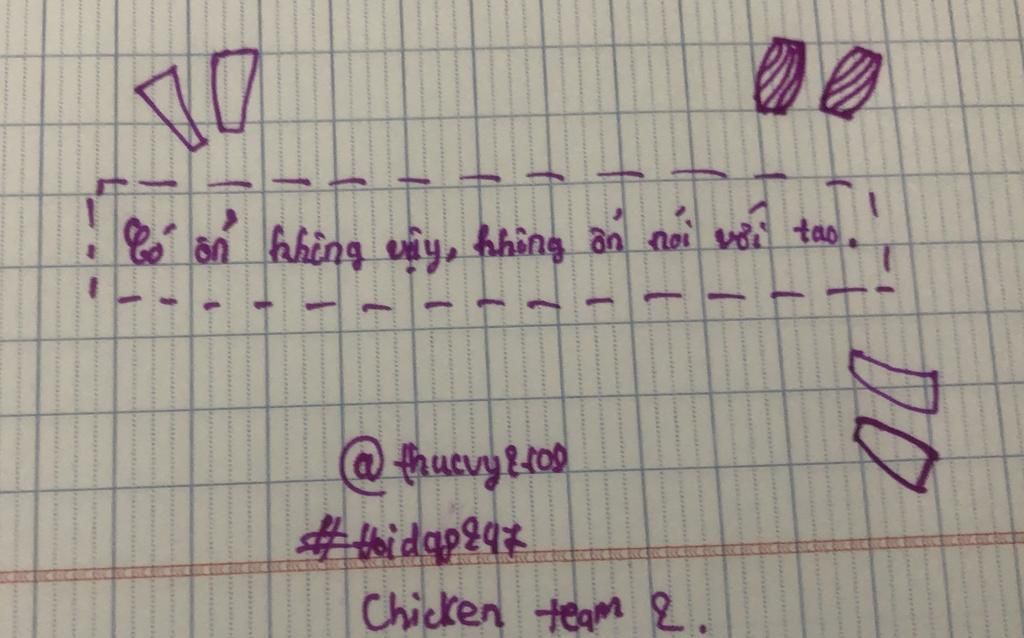 Có ổn không vậy, không ổn nói với tao.
@thucvy2109
#Hoidap247
Chicken team 2.